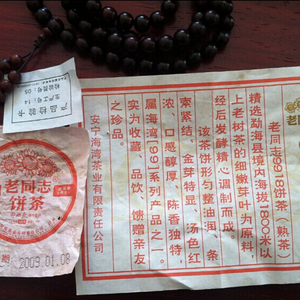 老同志9918饼茶（熟茶）
精选勐海县境内海拔1800米以
上老树茶的细嫩芽叶为原料，
经后发酵精心调制而成。
该茶饼形匀整油润、条
索紧结、金芽特显、汤色红
浓、口感醇厚、陈香独特，
属海湾《991》系列产品之一。
实为收藏、品饮、馈赠亲友
之珍品。
安宁海湾茶业有限责任公司
产品检验卡
生产工号：14
检验员号：05
老同志
饼茶
期：2009.01.08